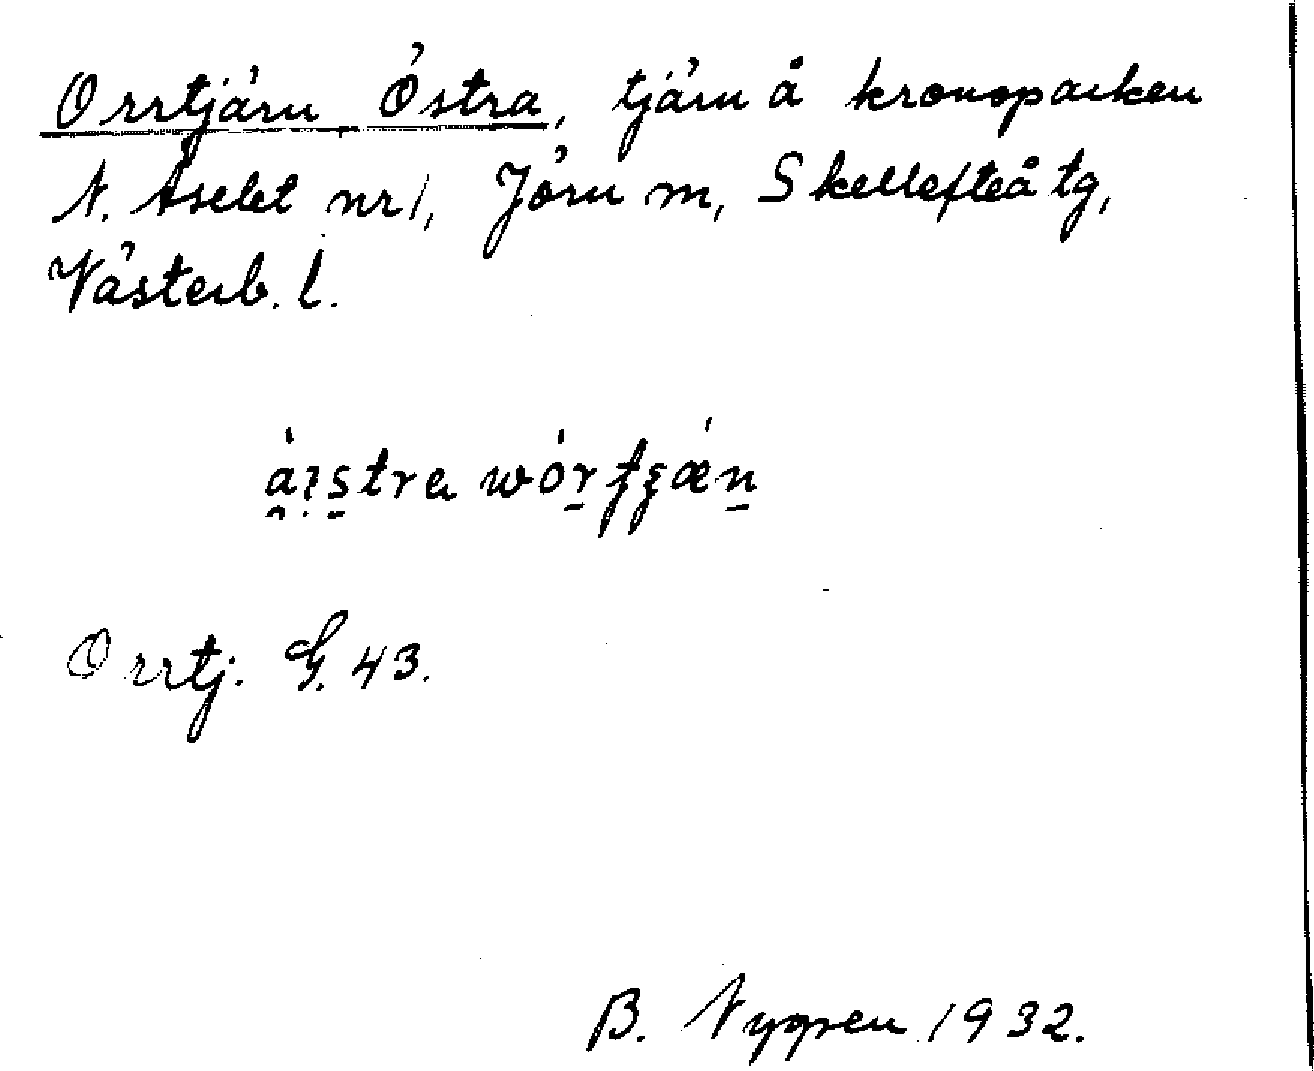 Orrtjärn Östra, tjärn å kronoparken
N. Åselet nr 1, Jörn m, Skellefteå tg,
Västerb. l.
Orrtj. G. 43.
B. Nygren 1932.